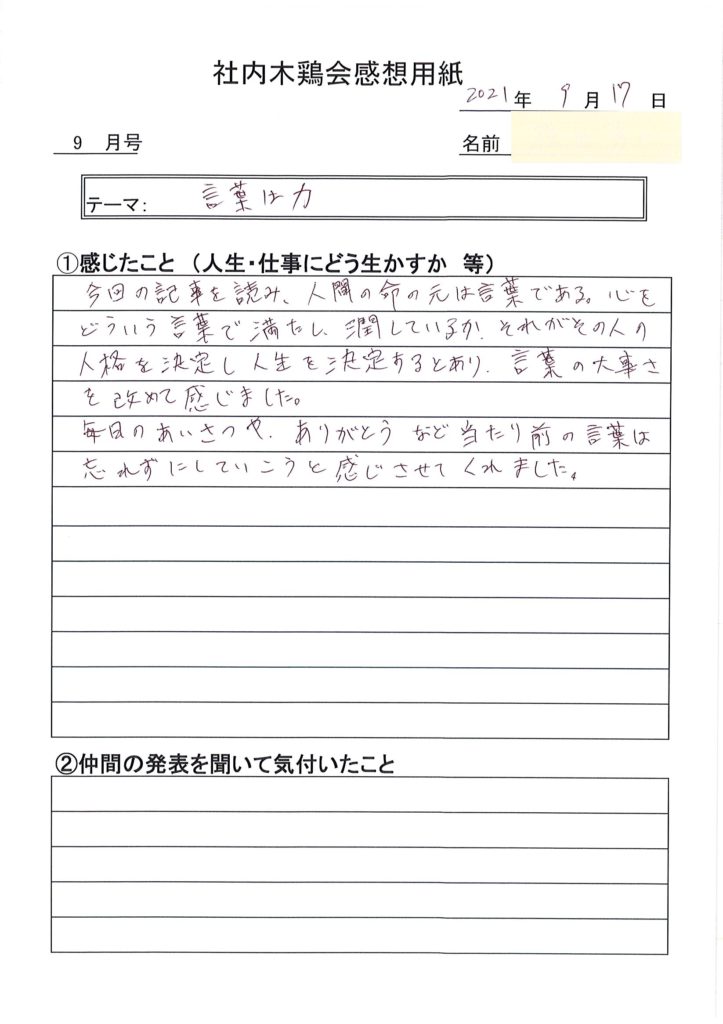 社内木鶏会感想用紙
2021年 9月17日
9 月号 名前
テーマ: 言葉は力
①感じたこと (人生・仕事にどう生かすか 等)
今回の記事を読み、人間の命の元は言葉である。心を
どういう言葉で満たし、潤しているか、それがその人の
人格を決定し人生を決定するとあり、言葉の大事さ
を改めて感じました。
毎日のあいさつや、ありがとうなど当たり前の言葉は
忘れずにしていこうと感じさせてくれました。
②仲間の発表を聞いて気付いたこと